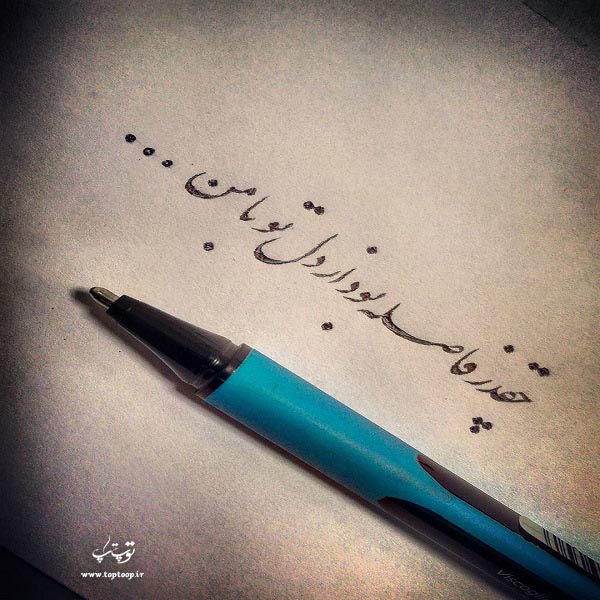 چقدر فاصله بود از دل تو با من ...
www.toptoop.ir